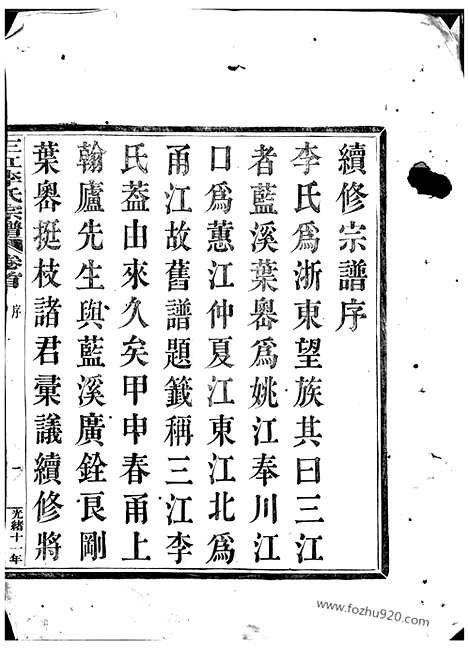 續修宗譜序
李氏爲浙東望族其曰三江
者藍溪葉嶴爲姚江奉川江
口爲蕙江仲夏江東江北爲
甬江故舊譜題籤稱三江李
氏葢由來久矣甲申春甬上
翰廬先生與藍溪廣銓良剛
葉嶴挺枝諸君彙議續修將
三江李氏宗譜 卷首 序 一 光緒十一年
www.fozhu920.com